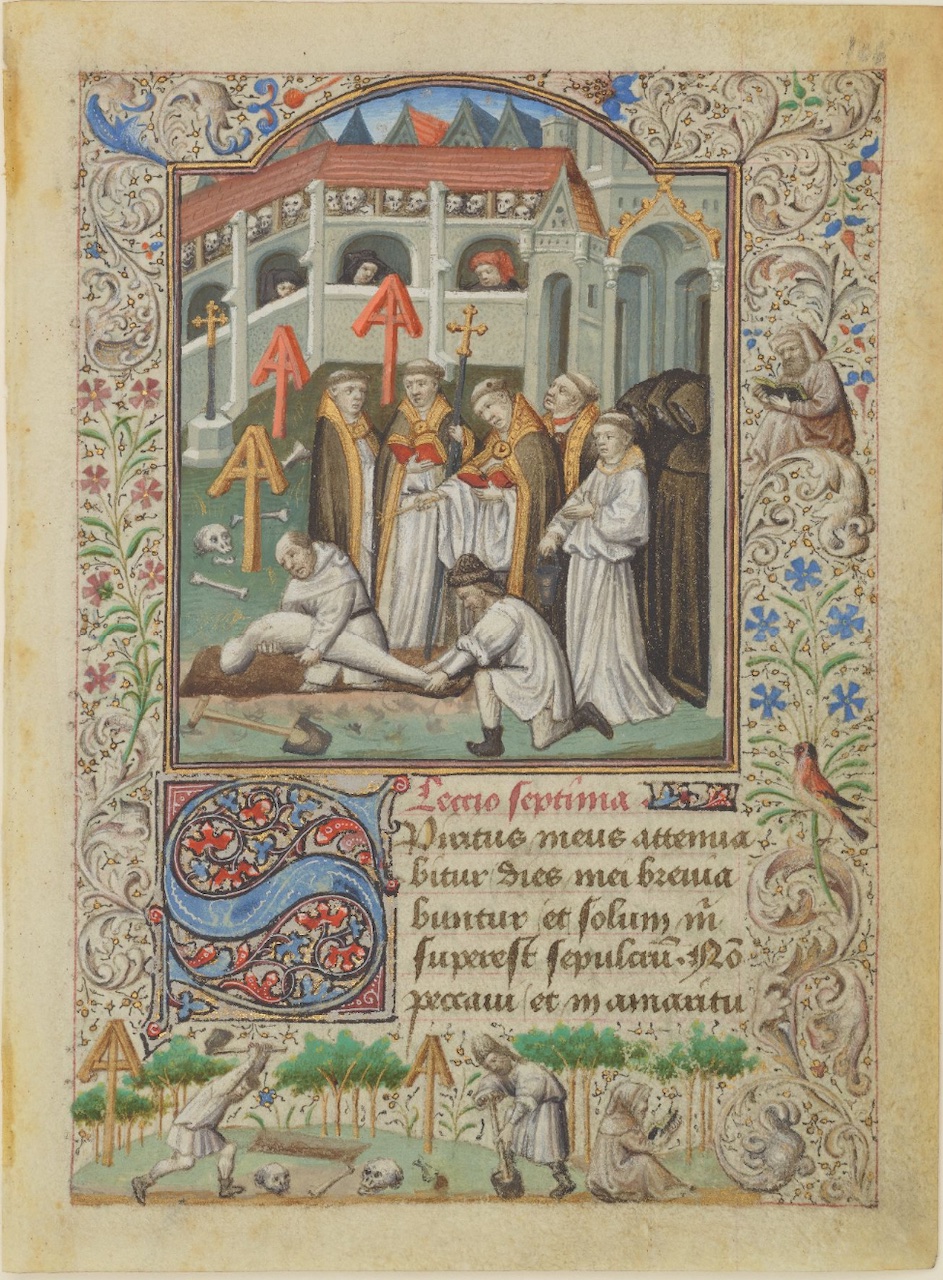 Leccio septima
Spiritus meus attenua
bitur dies mei breuia
buntur et solum m̄
superest sepulcrū. Nō
peccaui et in amaritu